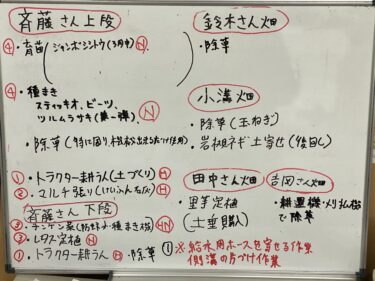 斉藤さん上段
④・育苗(ジャンボシシトウ(3月中) N
④・種まき
スティッキオ、ビーツ、
ツルムラサキ(第一弾) N
・除草(特に周り
①・トラクター耕うん(土づくり) H
②・マルチ張り(けいふん石灰) H
斉藤さん下段
③・チンゲン菜 種まき HN
③・レタス定植 H
①・トラクター耕うん H・除草
鈴木さん畑
・除草
小溝畑
・除草(玉ねぎ)
・岩槻ネギ土寄せ(後回し)
田中さん畑
・里芋定植
(土垂購入)
吉岡さん畑
・耕運機・刈払機
で除草
①※給水用ホースを寄せる作業
側溝の片づけ作業